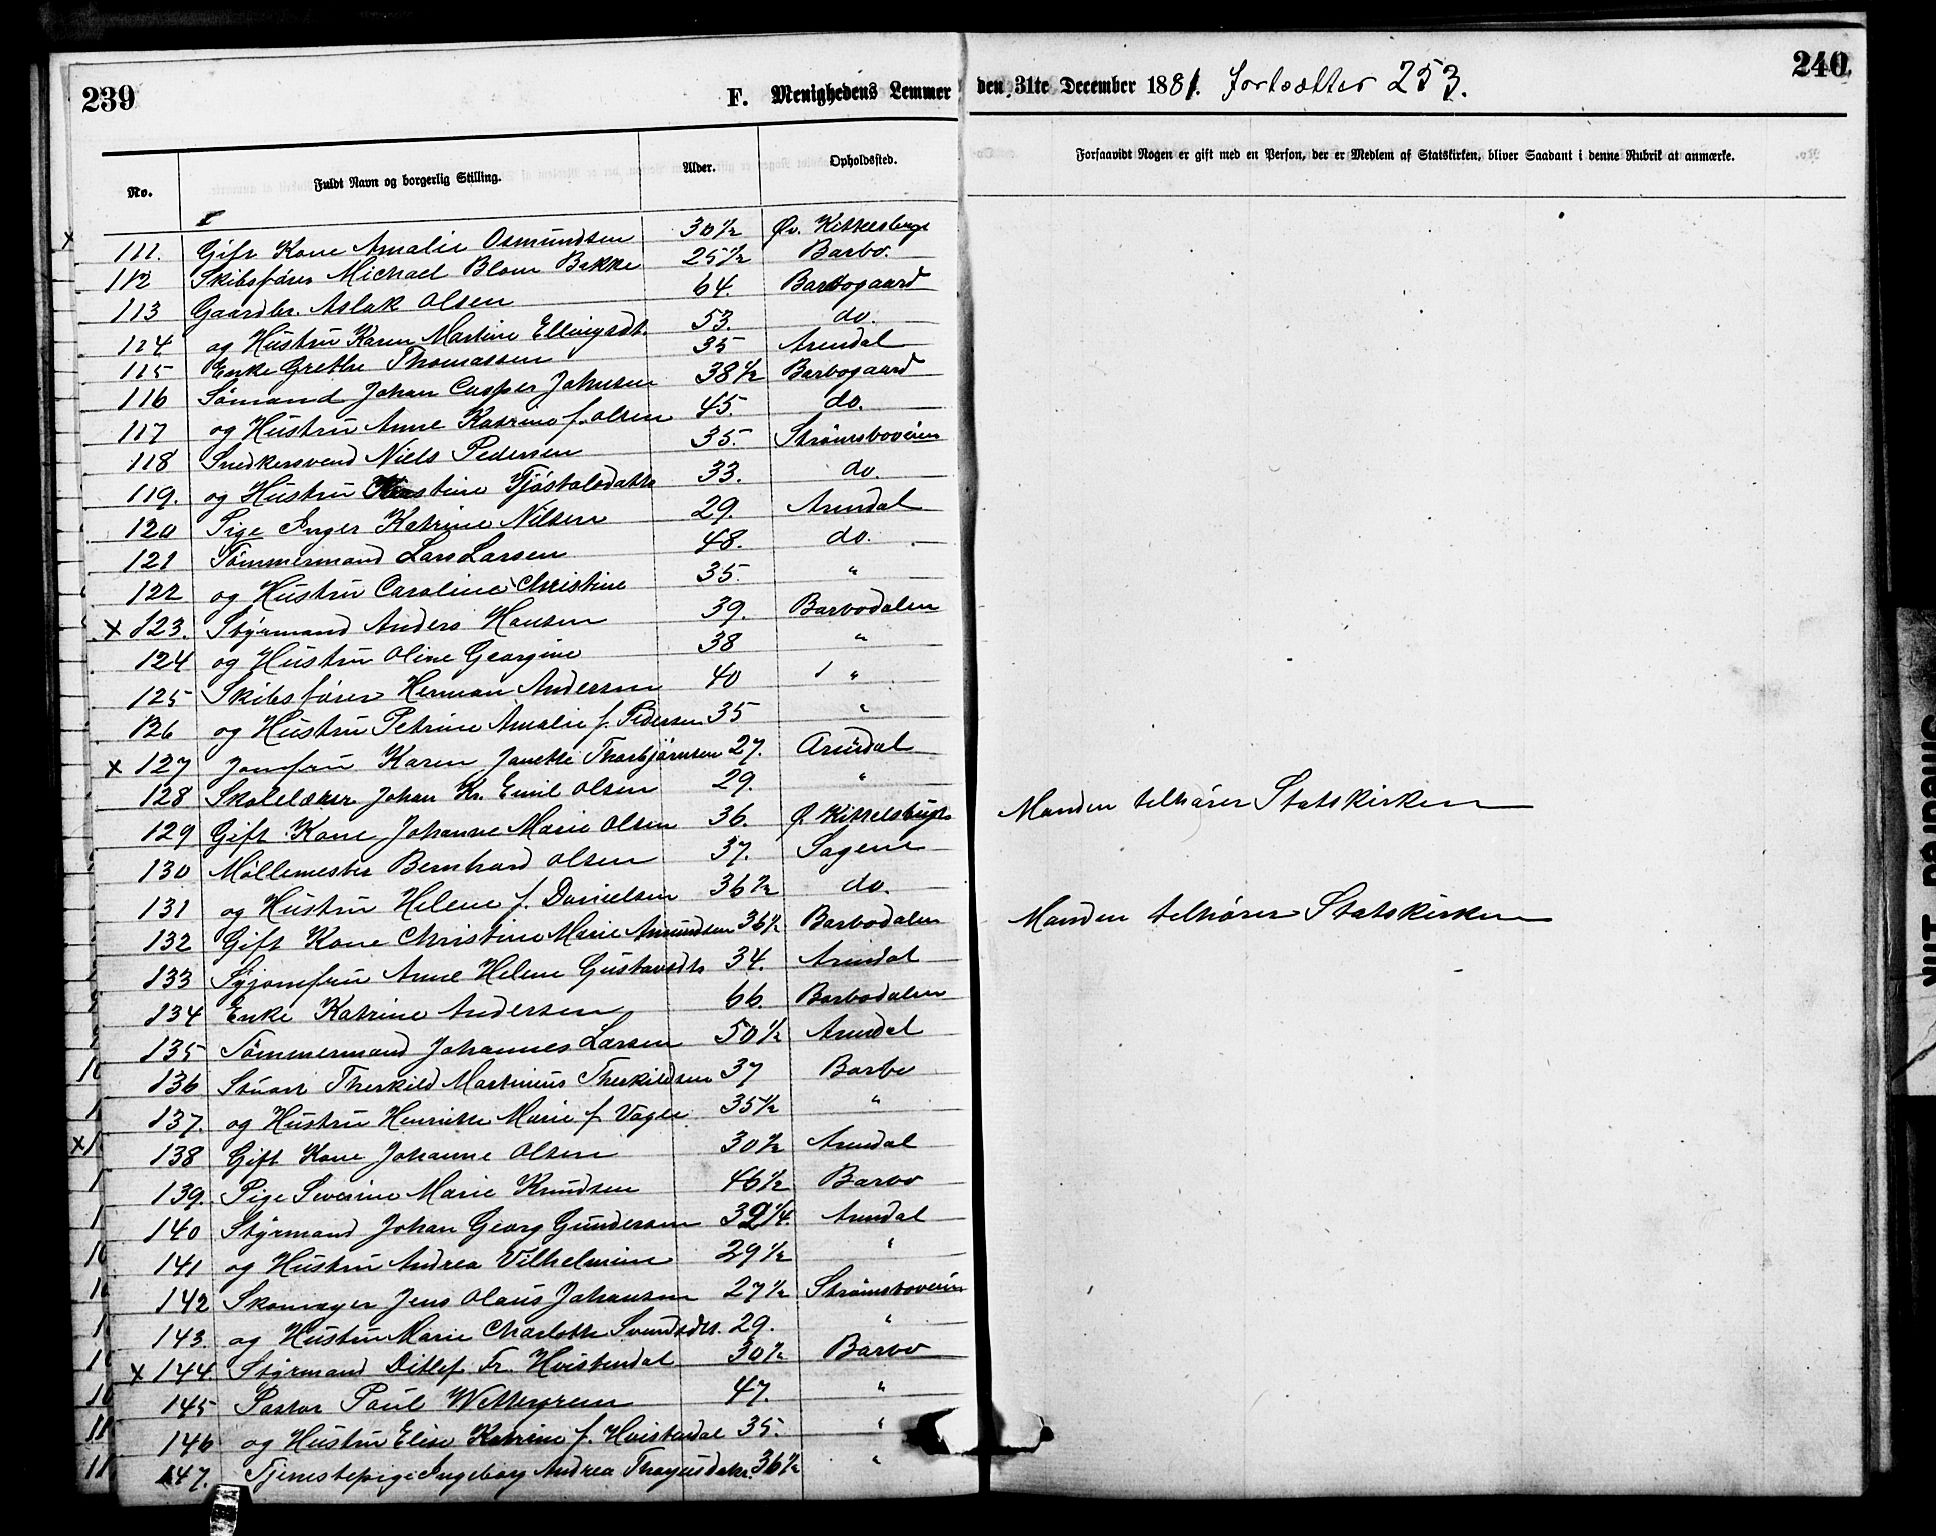 239
F. Menighedens Lemmer den 31te December 1881. Fortsætter 253.
240
No. Fuldt Navn og borgerlig Stilling. Alder. Opholdssted. Forsaavidt Nogen er gift med en Person, der er Medlem af Statskirken, bliver Saadant i denne Rubrik at anmærke.
x 111. Gift Kone Amalie Osmundsen 30½ Øv. Kittelsbugt
112 Skibsfører Michael Blom Bakke 25½ Barbo.
113 Gaardbr. Aslak Olsen 64. Barbogaard
114 og Hustru Karen Martine Ellingsdt. 53. do.
115 Enke Grethe Thomassen 35 Arendal
116 Sømand Johan Casper Johnsen 38½ Barbogaard
117 og Hustru Anne Katrine f. Olsen 45. do.
118 Snedkersvend Niels Pedersen 35. Strømsboveien
119. og Hustru Kirstine Tjøstolsdatter 33. do.
120 Pige Inger Katrine Nilsen 29. Arendal
121 Tømmermand Lars Larsen 48. do.
122 og Hustru Caroline Christine 35. "
x 123. Styrmand Anders Hansen 39. Barbodalen
124 og Hustru Oline Georgine 38 "
125 Skibsfører Herman Andersen 40 "
126 og Hustru Petrine Amalie f. Pedersen 35 "
x 127 Jomfru Karen Janette Thorbjørnsen 27. Arendal
128 Skolelærer Johan Kr. Emil Olsen 29. "
129 Gift Kone Johanne Marie Olsen 36. Ø Kittelsbugt Manden tilhører Statskirken
130 Møllemester Bernhard Olsen 37. Sagene
131 og Hustru Helene f. Danielsen 36½ do.
132 Gift Kone Christine Marie Amundsen 36½ Barbodalen Manden tilhører Statskirken
133 Syjomfru Anne Helene Gustavsdtr 34. Arendal
134 Enke Katrine Andersen 66. Barbodalen
135 Tømmermand Johannes Larsen 50½ Arendal
136 Stuart Therkild Martinius Therkildsen 37 Barbo
137. og Hustru Henrikke Marie f. Vagle 35½ "
138 Gift Kone Johanne Olsen 30½ Arendal
139. Pige Severine Marie Knudsen 46½ Barbo
140 Styrmand Johan Georg Gundersen 32¼. Arendal
141 og Hustru Andrea Vilhelmine 29½ "
142 Skomager Jens Olaus Johansen 27½ Strømsboveien
143. og Hustru Marie Charlotte Svendsdtr. 29. "
x 144. Styrmand Ditlef Fr. Hvistendal 30½ Barbo
145 Pastor Paul Wettergreen 47. "
146 og Hustru Elise Katrine f. Hvistendal 35. "
147. Tjenestepige Ingeborg Andrea 36½ "